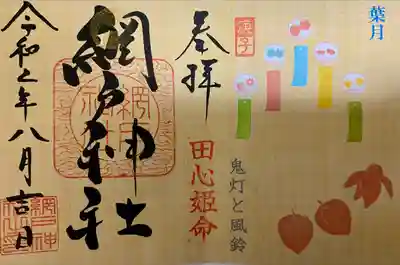 葉月
鬼灯と風鈴
庚子
奉拝
田心姫命
網戸神社
令和2年八月吉日